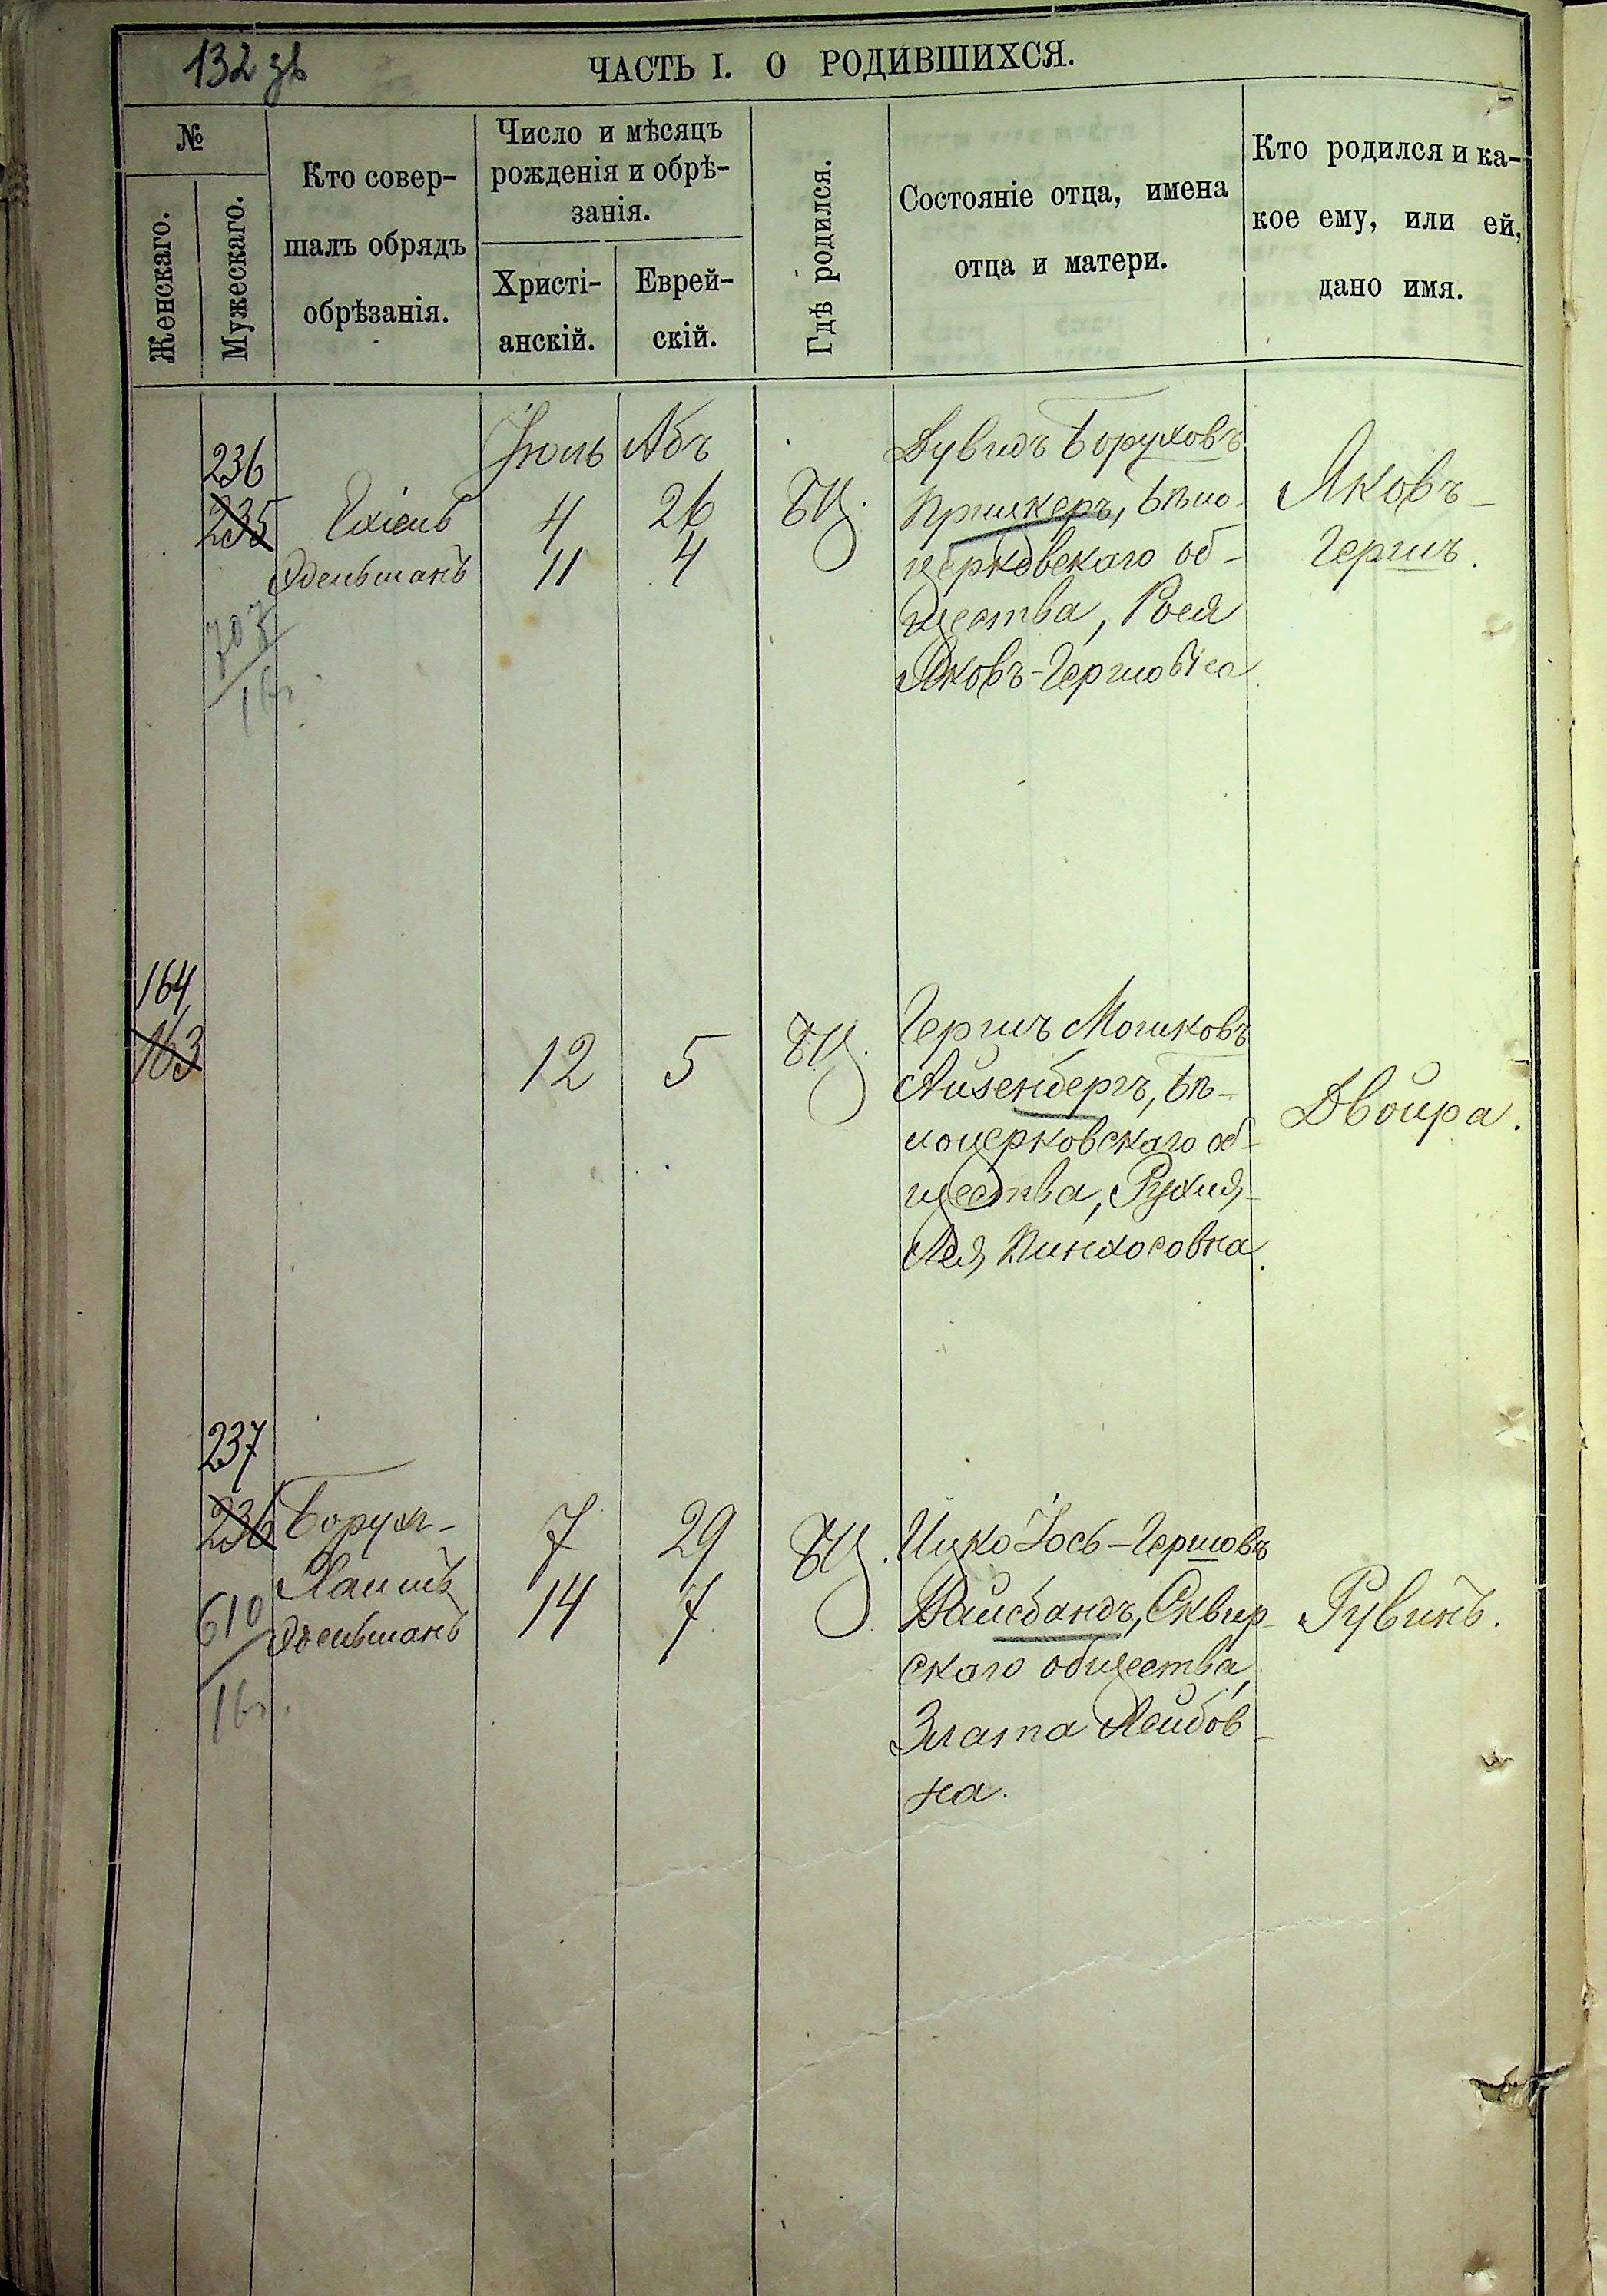 132 зв
ЧАСТЬ I. О РОДИВШИХСЯ.
№
Женскаго.
Мужескаго.
Кто совер-
шалъ обрядъ
обрѣзанія.
Число и мѣсяцъ
рожденія и обрѣ-
занія.
Христі-
анскій.
Еврей-
скій.
Гдѣ родился.
Состояніе отца, имена
отца и матери.
Кто родился и ка-
кое ему, или ей,
дано имя.
236
235
Ехіель
Эдельманъ
Іюль
4
11
Абъ
26
4
БЦ.
Дувидъ Боруховъ
Пришкеръ, Бѣло-
церковскаго об-
щества, Рося
Яковъ-Гершовна.
Яковъ-
Гершъ.
164
163
12
5
БЦ.
Гершъ Мошковъ
Айзенбергъ, Бѣ-
лоцерковскаго об-
щества, Рухля-
Лея Пинхосовна.
Двойра.
237
236
610
Борухъ-
Хаимъ
Эдельманъ
7
14
29
7
БЦ.
Ицко Іось-Гершовъ
Вайсбандъ, Сквир-
скаго общества,
Злата Лейбов-
на.
Рувинъ.